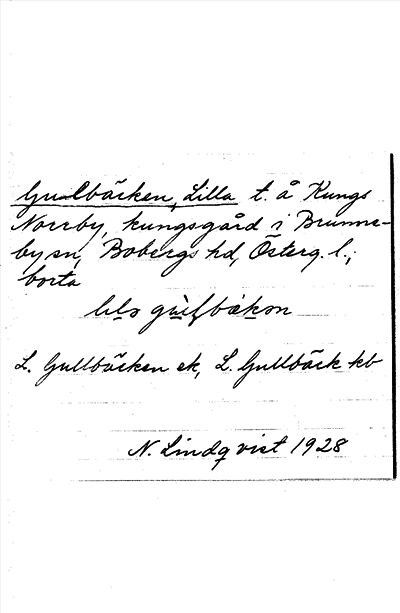 Gullbäcken, Lilla t. å Kungs
Norrby, kungsgård i Brunne-
by sn, Bobergs hd, Österg. l.;
borta
L. Gullbäcken ek, L. Gullbäck kb
N. Lindqvist 1928